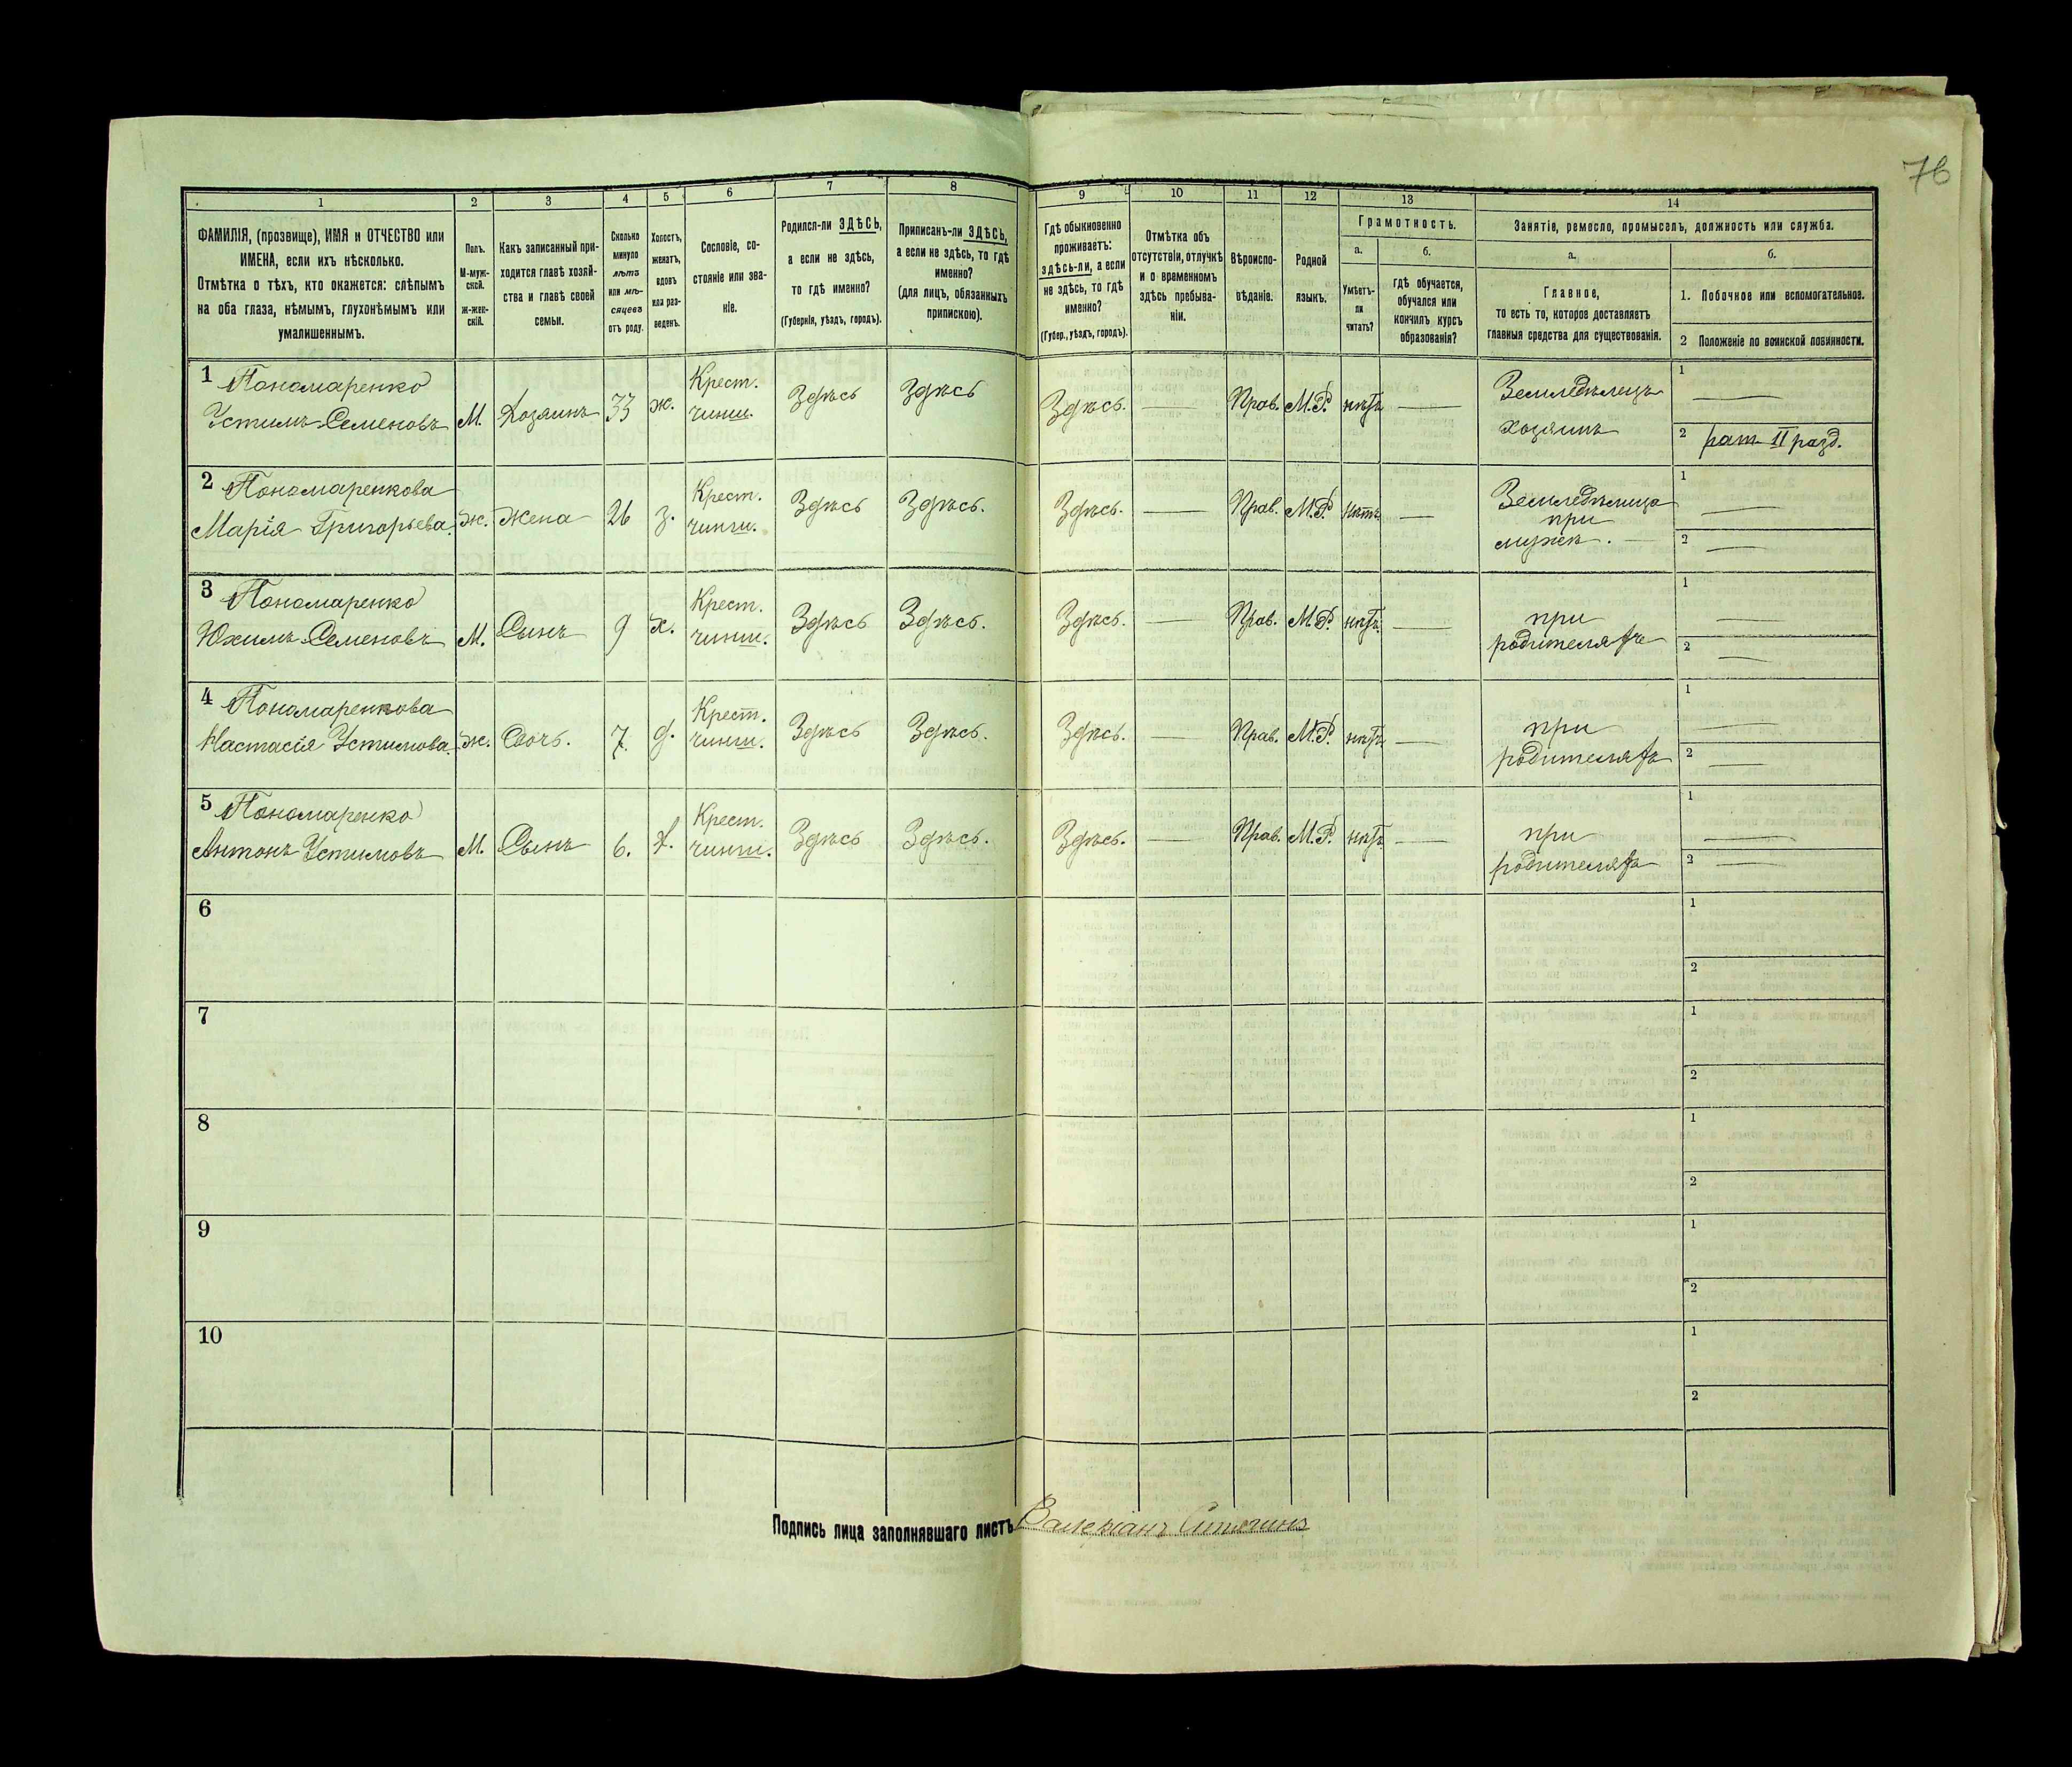 76
1 2 3 4 5 6 7 8 9 10 11 12 13 14
ФАМИЛІЯ, (прозвище), ИМЯ и ОТЧЕСТВО или
ИМЕНА, если ихъ нѣсколько.
Отмѣтка о тѣхъ, кто окажется: слѣпымъ
на оба глаза, нѣмымъ, глухонѣмымъ или
умалишеннымъ.
Полъ.
М-муж-
ской.
Ж-жен-
скій.
Какъ записанный при-
ходится главѣ хозяй-
ства и главѣ своей
семьи.
Сколько
минуло
лѣтъ
или мѣ-
сяцевъ
отъ роду.
Холостъ,
женатъ,
вдовъ
или раз-
веденъ.
Сословіе, со-
стояніе или зва-
ніе.
Родился-ли ЗДѢСЬ,
а если не здѣсь,
то гдѣ именно?
(Губернія, уѣздъ, городъ).
Приписанъ-ли ЗДѢСЬ,
а если не здѣсь, то гдѣ
именно?
(для лицъ, обязанныхъ
припискою).
Гдѣ обыкновенно
проживаетъ:
здѣсь-ли, а если
не здѣсь, то гдѣ
именно?
(Губер., уѣздъ, городъ).
Отмѣтка объ
отсутствіи, отлучкѣ
и о временномъ
здѣсь пребыва-
ніи.
Вѣроиспо-
вѣданіе.
Родной
языкъ.
Грамотность.
а.
Умѣетъ-
ли
читать?
б.
Гдѣ обучается,
обучался или
кончилъ курсъ
образованія?
Занятіе, ремесло, промыселъ, должность или служба.
а.
Главное,
то есть то, которое доставляетъ
главныя средства для существованія.
б.
1. Побочное или вспомогательное.
2 Положеніе по воинской повинности.
1 Пономаренко
Устимъ Семеновъ М. Хозяинъ 33 ж. Крест. чинш. Здѣсь Здѣсь Здѣсь. — Прав. М.Р. нѣтъ — Земледѣлецъ хозяинъ
1 —
2 рат. II разд.
2 Пономаренкова
Марія Григорьева. Ж. Жена 26 з. Крест. чинш. Здѣсь Здѣсь. Здѣсь. — Прав. М.Р. нѣтъ — Земледѣлица при мужѣ. —
1 —
2 —
3 Пономаренко
Юхимъ Семеновъ М. Сынъ 9 х. Крест. чинш. Здѣсь Здѣсь. Здѣсь. — Прав. М.Р. нѣтъ — при родителяхъ
1 —
2 —
4 Пономаренкова
Настасія Устимова. Ж. Дочь. 7. д. Крест. чинш. Здѣсь Здѣсь. Здѣсь. — Прав. М.Р. нѣтъ — при родителяхъ
1 —
2 —
5 Пономаренко
Антонъ Устимовъ М. Сынъ 6. х. Крест. чинш. Здѣсь Здѣсь. Здѣсь. — Прав. М.Р. нѣтъ — при родителяхъ
1 —
2 —
6
1
2
7
1
2
8
1
2
9
1
2
10
1
2
Подпись лица заполнявшаго листъ Валеріанъ